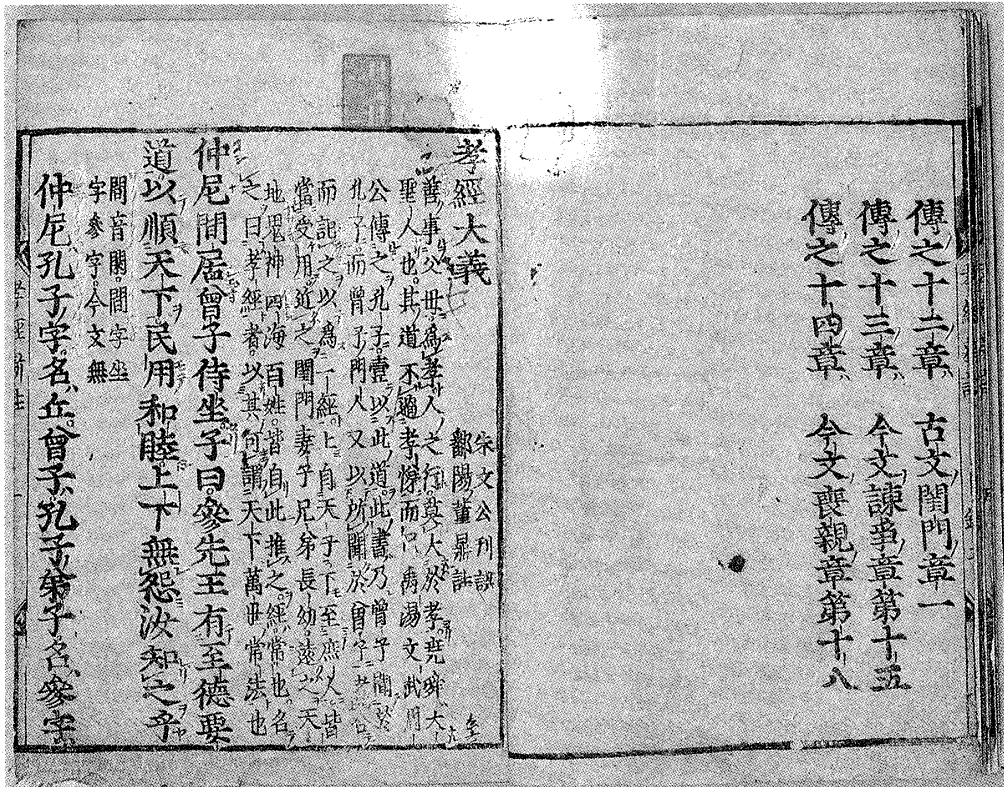 傳之十二章 古文閨門章一
傳之十三章 今文諫爭章第十五
傳之十四章 今文喪親章第十八
孝經大義
宋文公刊誤
鄱陽董鼎註
善事父母爲孝人之行莫大於孝堯舜大
聖人也其道不過孝悌而已禹湯文武周
公傳之孔子壹以此道此書乃曾子聞
孔子而曾子門人又以所聞於曾子
而記之以爲一經上自天子下至庶人皆
當受用近之閨門妻子兄弟長幼遠之天
地鬼神四海百姓皆自此推之經常也名
之曰孝經者以其可謂天下萬世常法也
仲尼閒居曾子侍坐子曰參先王有至德要
道以順天下民用和睦上下無怨汝知之乎
閒音閑閒字坐
字參字今文無
仲尼孔子字名丘曾子孔子弟子名參字